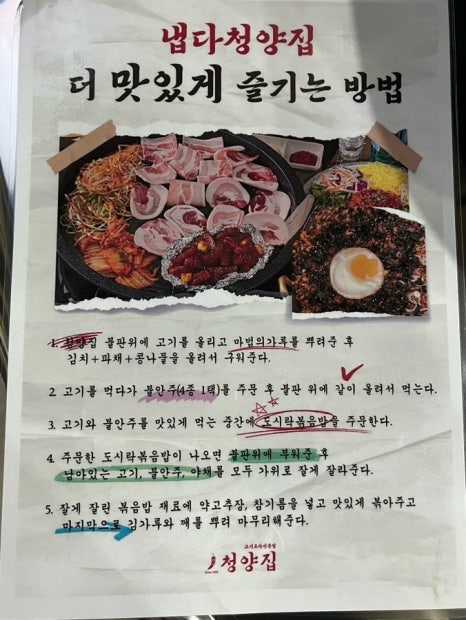 냅다청양집
더 맛있게 즐기는 방법
1. 청양집 불판위에 고기를 올리고 마법의가루를 뿌려준 후
김치+파채+콩나물을 올려서 구워준다.
2. 고기를 먹다가 불안주(4종 1택)를 주문 후 불판 위에 같이 올려서 먹는다.
3. 고기와 불안주를 맛있게 먹는 중간에 도시락볶음밥을 주문한다.
4. 주문한 도시락볶음밥이 나오면 불판위에 부워준 후
남아있는 고기, 불안주, 야채를 모두 가위로 잘게 잘라준다.
5. 잘게 잘린 볶음밥 재료에 약고추장, 참기름을 넣고 맛있게 볶아주고
마지막으로 김가루와 깨를 뿌려 마무리해준다.
청양집